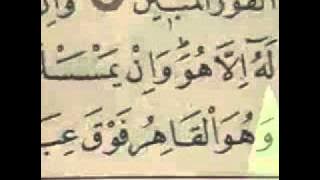 الْفَوْزُ الْمُبِينُ وَاِنْ
لَهٗ اِلَّا هُوَ وَاِنْ يَمْسَسْ
وَهُوَ الْقَاهِرُ فَوْقَ عِبَا